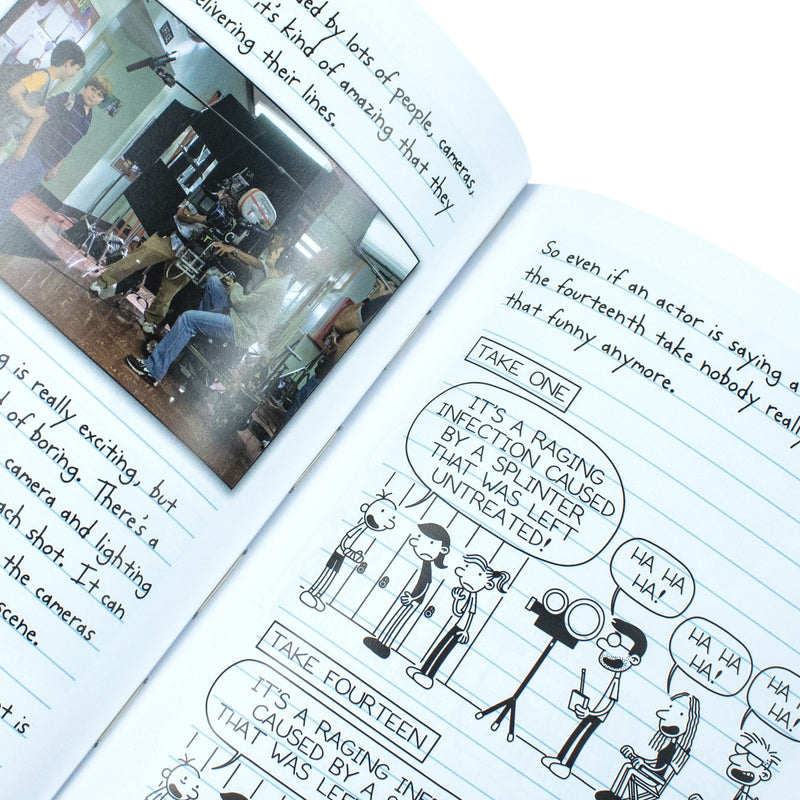 by lots of people, cameras,
it's kind of amazing that they
delivering their lines.
is really exciting, but
of boring. There's a
camera and lighting
each shot. It can
the cameras
scene.
is
So even if an actor is saying a
the fourteenth take nobody really
that funny anymore.
TAKE ONE
IT'S A RAGING
INFECTION CAUSED
BY A SPLINTER
THAT WAS LEFT
UNTREATED!
HA HA
HA!
HA HA
HA!
HA
HA!
TAKE FOURTEEN
IT'S A RAGING
CAUSED BY A
THAT WAS